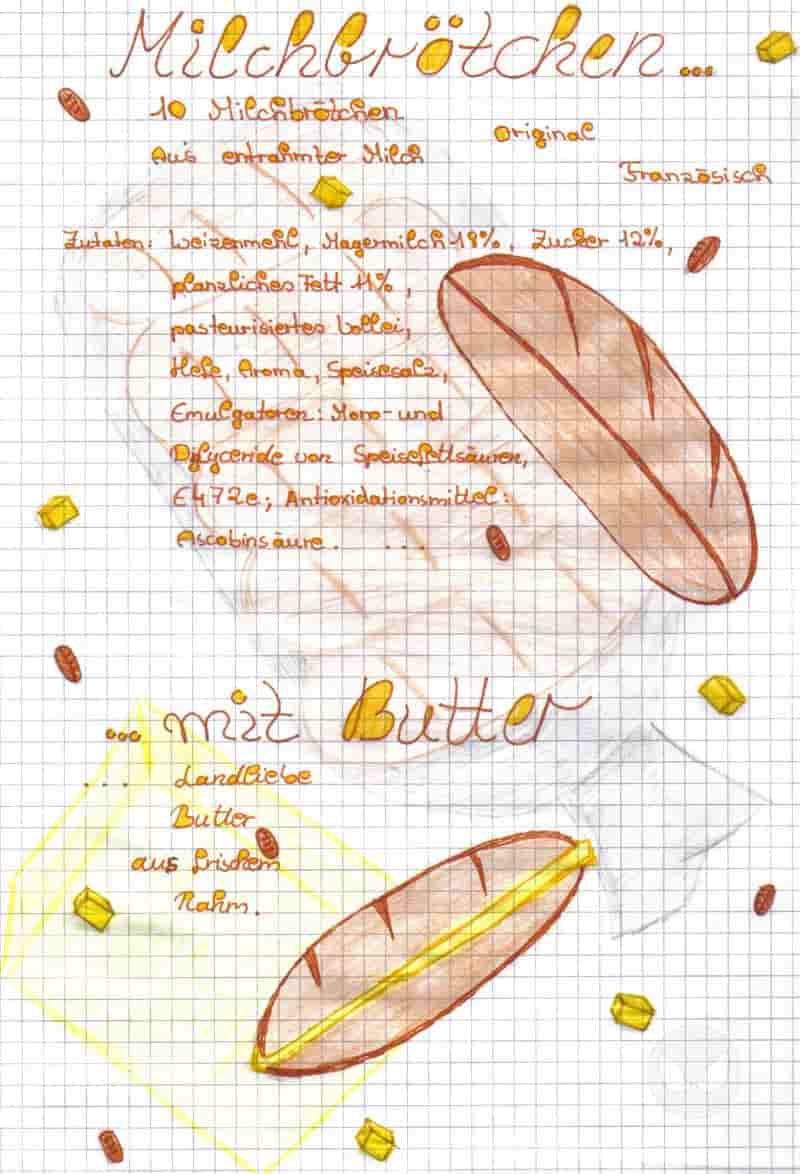 Milchbrötchen...
10 Milchbrötchen
Aus entrahmter Milch
Original
Französisch
Zutaten: Weizenmehl, Magermilch 18%, Zucker 12%,
planzliches Fett 11%,
pasteurisiertes Vollei,
Hefe, Aroma, Speisesalz,
Emulgatoren: Mono- und
Diglyceride von Speisefettsäuren,
E472e; Antioxidationsmittel:
Ascobinsäure. ...
... mit Butter
... Landliebe
Butter
aus frischem
Rahm.